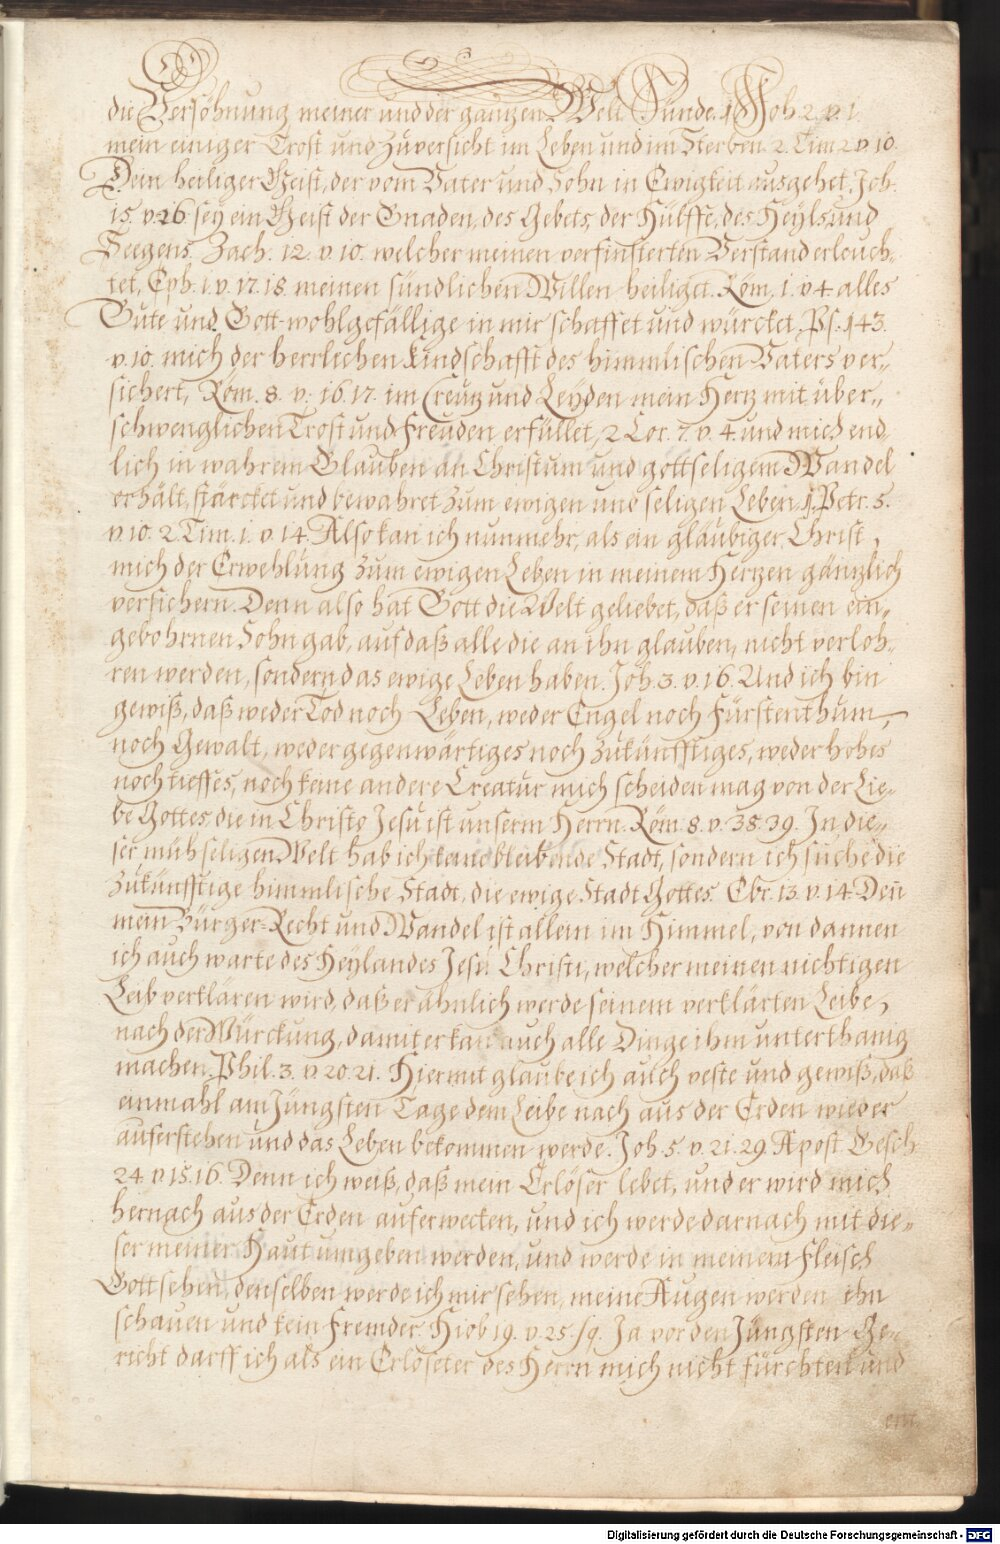 die Versöhnung meiner und der gantzen Welt Sünde. 1 Joh. 2. v. 1.
mein einiger Trost und Zuversicht im Leben und im Sterben. 2. Tim. 2 v. 10.
Dein heiliger Geist, der vom Vater und Sohn in Ewigkeit ausgehet, Joh.
15. v. 26. sey ein Geist der Gnaden, des Gebets, der Hülffe, des Heyls und
Seegens. Zach. 12. v. 10. welcher meinen verfinsterten Verstand erleuch-
tet, Eph. 1. v. 17. 18. meinen sündlichen Willen heiliget. Röm. 1. v. 4. alles
Gute und Gott-wohlgefällige in mir schaffet und würcket, Ps. 143.
v. 10. mich der herrlichen Kindschafft des himmlischen Vaters ver-
sichert, Röm. 8. v. 16. 17. im Creutz und Leyden mein Hertz mit über-
schwenglichen Trost und Freuden erfüllet, 2 Cor. 7. v. 4. und mich end-
lich in wahrem Glauben an Christum und gottseligem Wandel
erhält, stärcket und bewahret zum ewigen und seligen Leben. 1. Petr. 5.
v. 10. 2. Tim. 1. v. 14. Also kan ich nunmehr, als ein gläubiger Christ,
mich der Erwehlung zum ewigen Leben in meinem Hertzen gäntzlich
versichern. Denn also hat Gott die Welt geliebet, daß er seinen ein-
gebohrnen Sohn gab, auf daß alle die an ihn glauben, nicht verloh-
ren werden, sondern das ewige Leben haben. Joh. 3. v. 16. Und ich bin
gewiß, daß weder Tod noch Leben, weder Engel noch Fürstenthum,
noch Gewalt, weder gegenwärtiges noch zukünfftiges, weder hohes
noch tieffes, noch keine andere Creatur mich scheiden mag von der Lie-
be Gottes, die in Christo Jesu ist unserm Herrn. Röm. 8. v. 38. 39. In die-
ser mühseligen Welt hab ich keine bleibende Stadt, sondern ich suche die
zukünfftige himmlische Stadt, die ewige Stadt Gottes. Ebr. 13. v. 14. Deñ
mein Bürger-Recht und Wandel ist allein im Himmel, von dannen
ich auch warte des Heylandes Jesu Christi, welcher meinen nichtigen
Leib verklären wird, daß er ähnlich werde seinem verklärten Leibe,
nach der Würckung, damit er kan auch alle Dinge ihm unterthänig
machen. Phil. 3. v. 20. 21. Hiermit glaube ich auch veste und gewiß, daß
einmahl am Jüngsten Tage dem Leibe nach aus der Erden wieder
auferstehen und das Leben bekommen werde. Joh. 5. v. 21. 29. Apost. Gesch.
24. v. 15. 16. Denn ich weiß, daß mein Erlöser lebet, und er wird mich
hernach aus der Erden auferwecken, und ich werde darnach mit die-
ser meiner Haut umgeben werden, und werde in meinem Fleisch
Gott sehen, denselben werde ich mir sehen, meine Augen werden ihn
schauen und kein Fremder. Hiob 19. v. 25. sq. Ja vor den Jüngsten Ge-
richt darff ich als ein Erlöseter des Herrn mich nicht fürchten und
ent
Digitalisierung gefördert durch die Deutsche Forschungsgemeinschaft - DFG